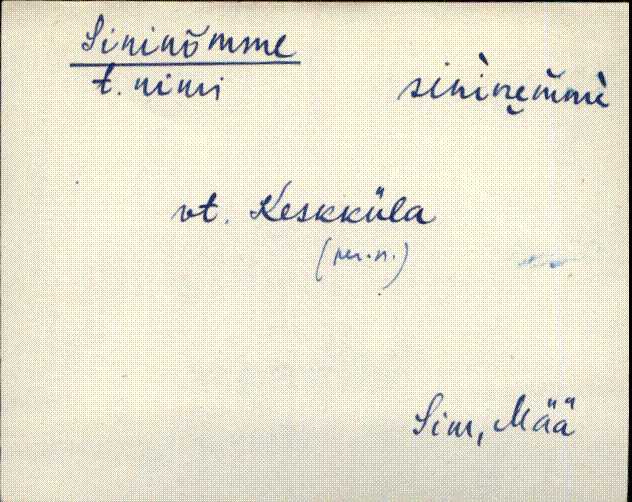 Sininõmme
t. nimi
sìnìne̮m̆mè
vt. Keskküla
(per.n.)
Sim, Mää